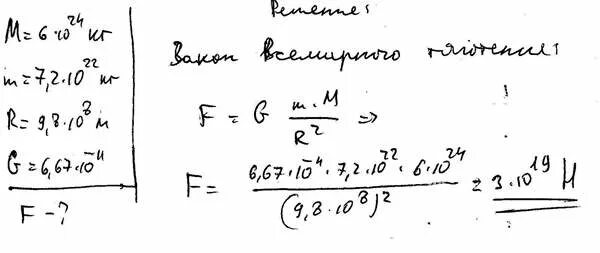 M = 6·10²⁴ кг
m = 7,2·10²² кг
R = 9,8·10⁸ м
G = 6,67·10⁻¹¹
F - ?
Решение:
Закон Всемирного тяготения:
F = G m·M / R² =>
F = 6,67·10⁻¹¹ · 7,2·10²² · 6·10²⁴ / (9,8·10⁸)² = 3·10¹⁹ Н